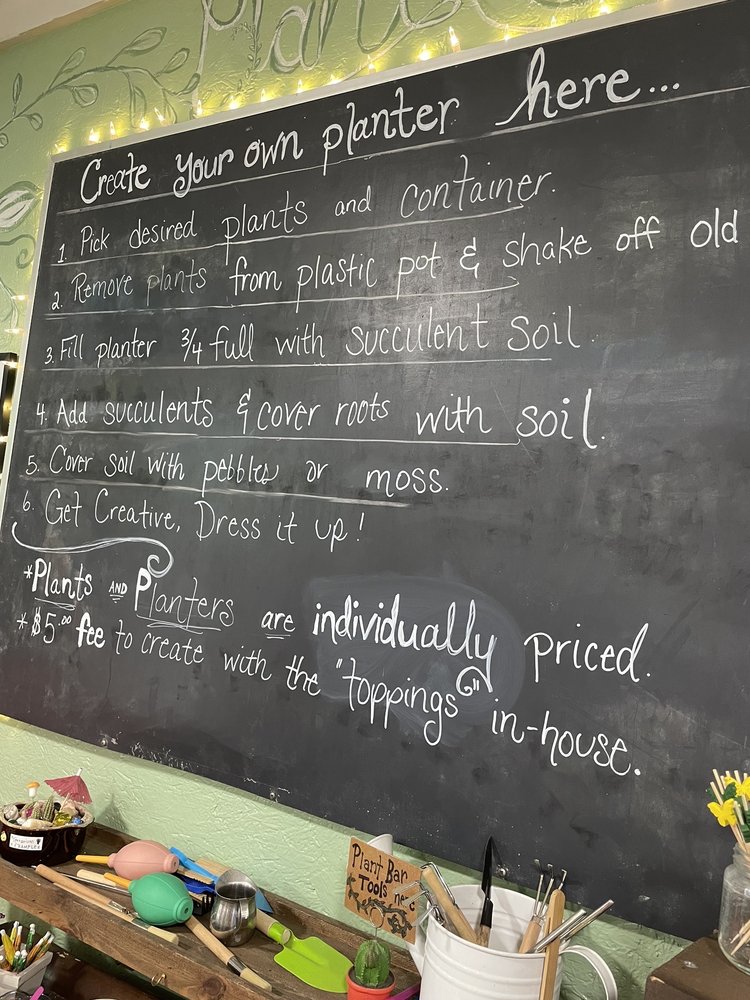 Plant
Create your own planter here...
1. Pick desired plants and container.
2. Remove plants from plastic pot & shake off old
3. Fill planter 3/4 full with succulent soil.
4. Add succulents & cover roots with soil.
5. Cover soil with pebbles or moss.
6. Get Creative, Dress it up!
*Plants AND Planters are individually priced.
*$5.00 fee to create with the "toppings" in-house.
Plant Bar
Tools